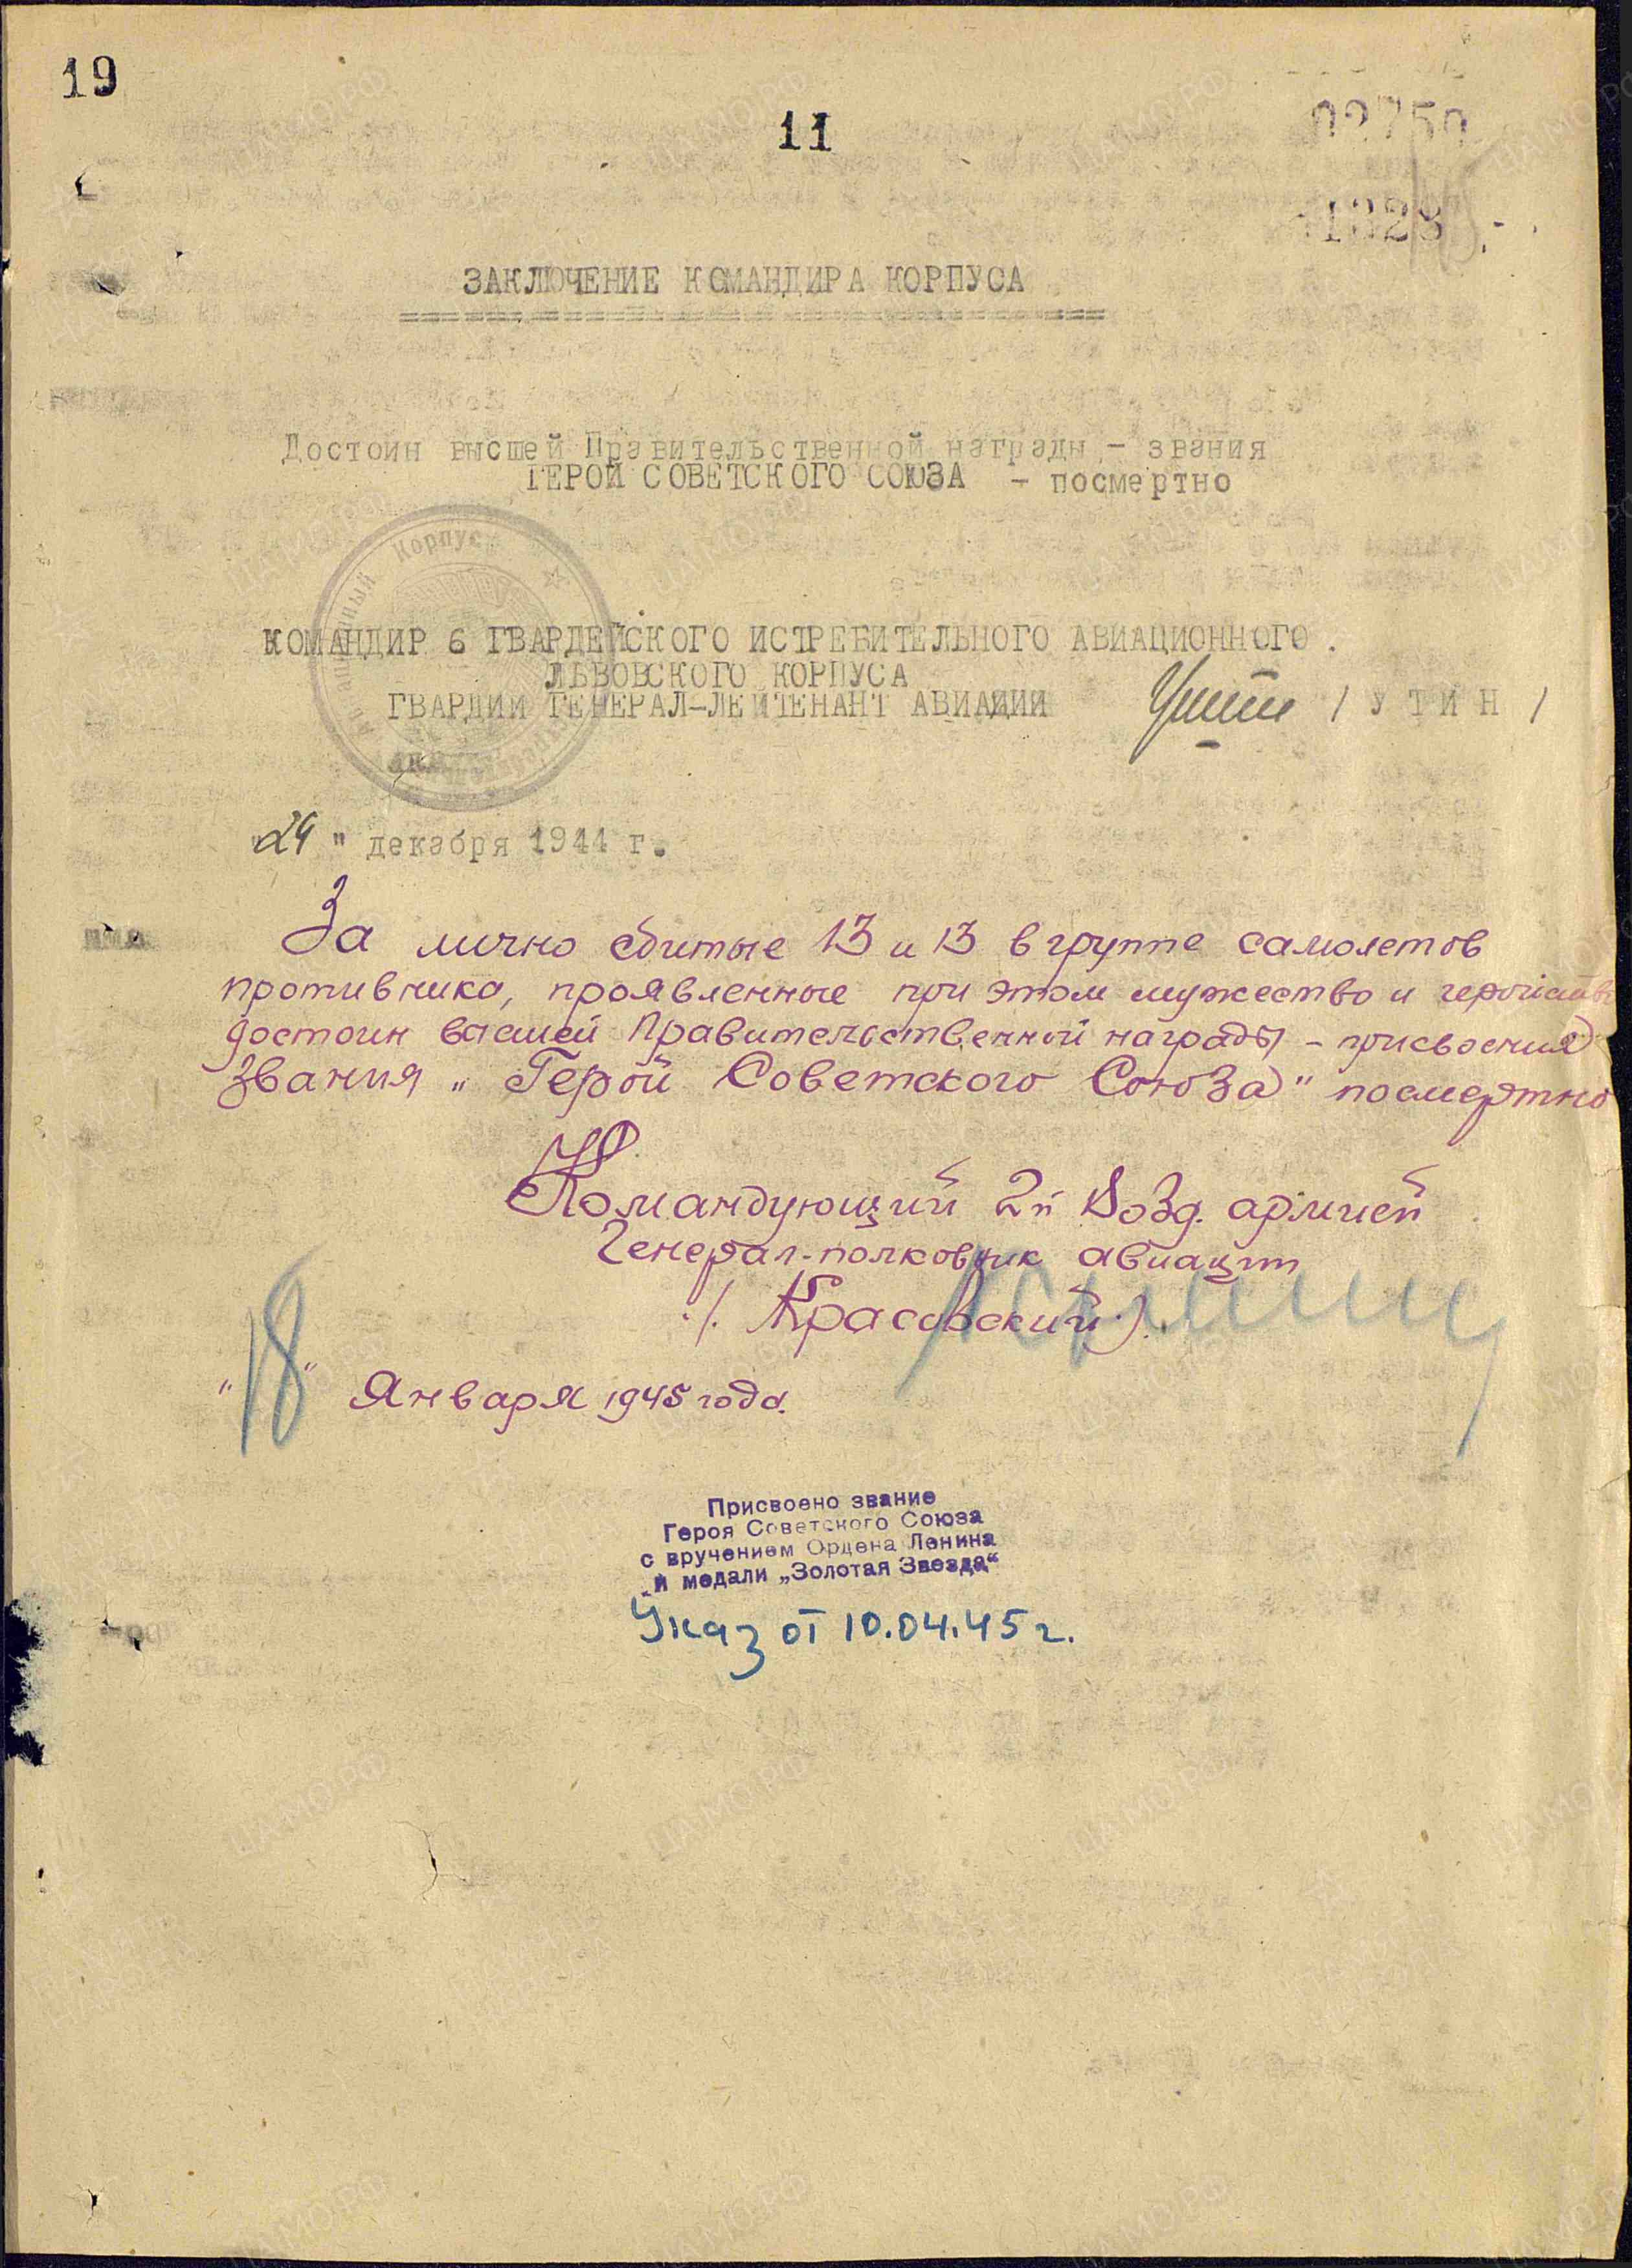 19
11
02750
ЗАКЛЮЧЕНИЕ КОМАНДИРА КОРПУСА
Достоин высшей Правительственной награды - звания
ГЕРОЙ СОВЕТСКОГО СОЮЗА - посмертно
Корпус
КОМАНДИР 6 ГВАРДЕЙСКОГО ИСТРЕБИТЕЛЬНОГО АВИАЦИОННОГО
ЛЬВОВСКОГО КОРПУСА
ГВАРДИИ ГЕНЕРАЛ-ЛЕЙТЕНАНТ АВИАЦИИ Утин / У Т И Н /
"29" декабря 1944 г.
За лично сбитые 13 и 13 в группе самолетов
противника, проявленные при этом мужество и
достоин высшей Правительственной награды - присвоения
звания „Герой Советского Союза" посмертно
Командующий 2й Возд. армией
Генерал-полковник авиации
/. Красовский)
"18" Января 1945 года.
Присвоено звание
Героя Советского Союза
с вручением Ордена Ленина
и медали „Золотая Звезда“
Указ от 10.04.45 г.